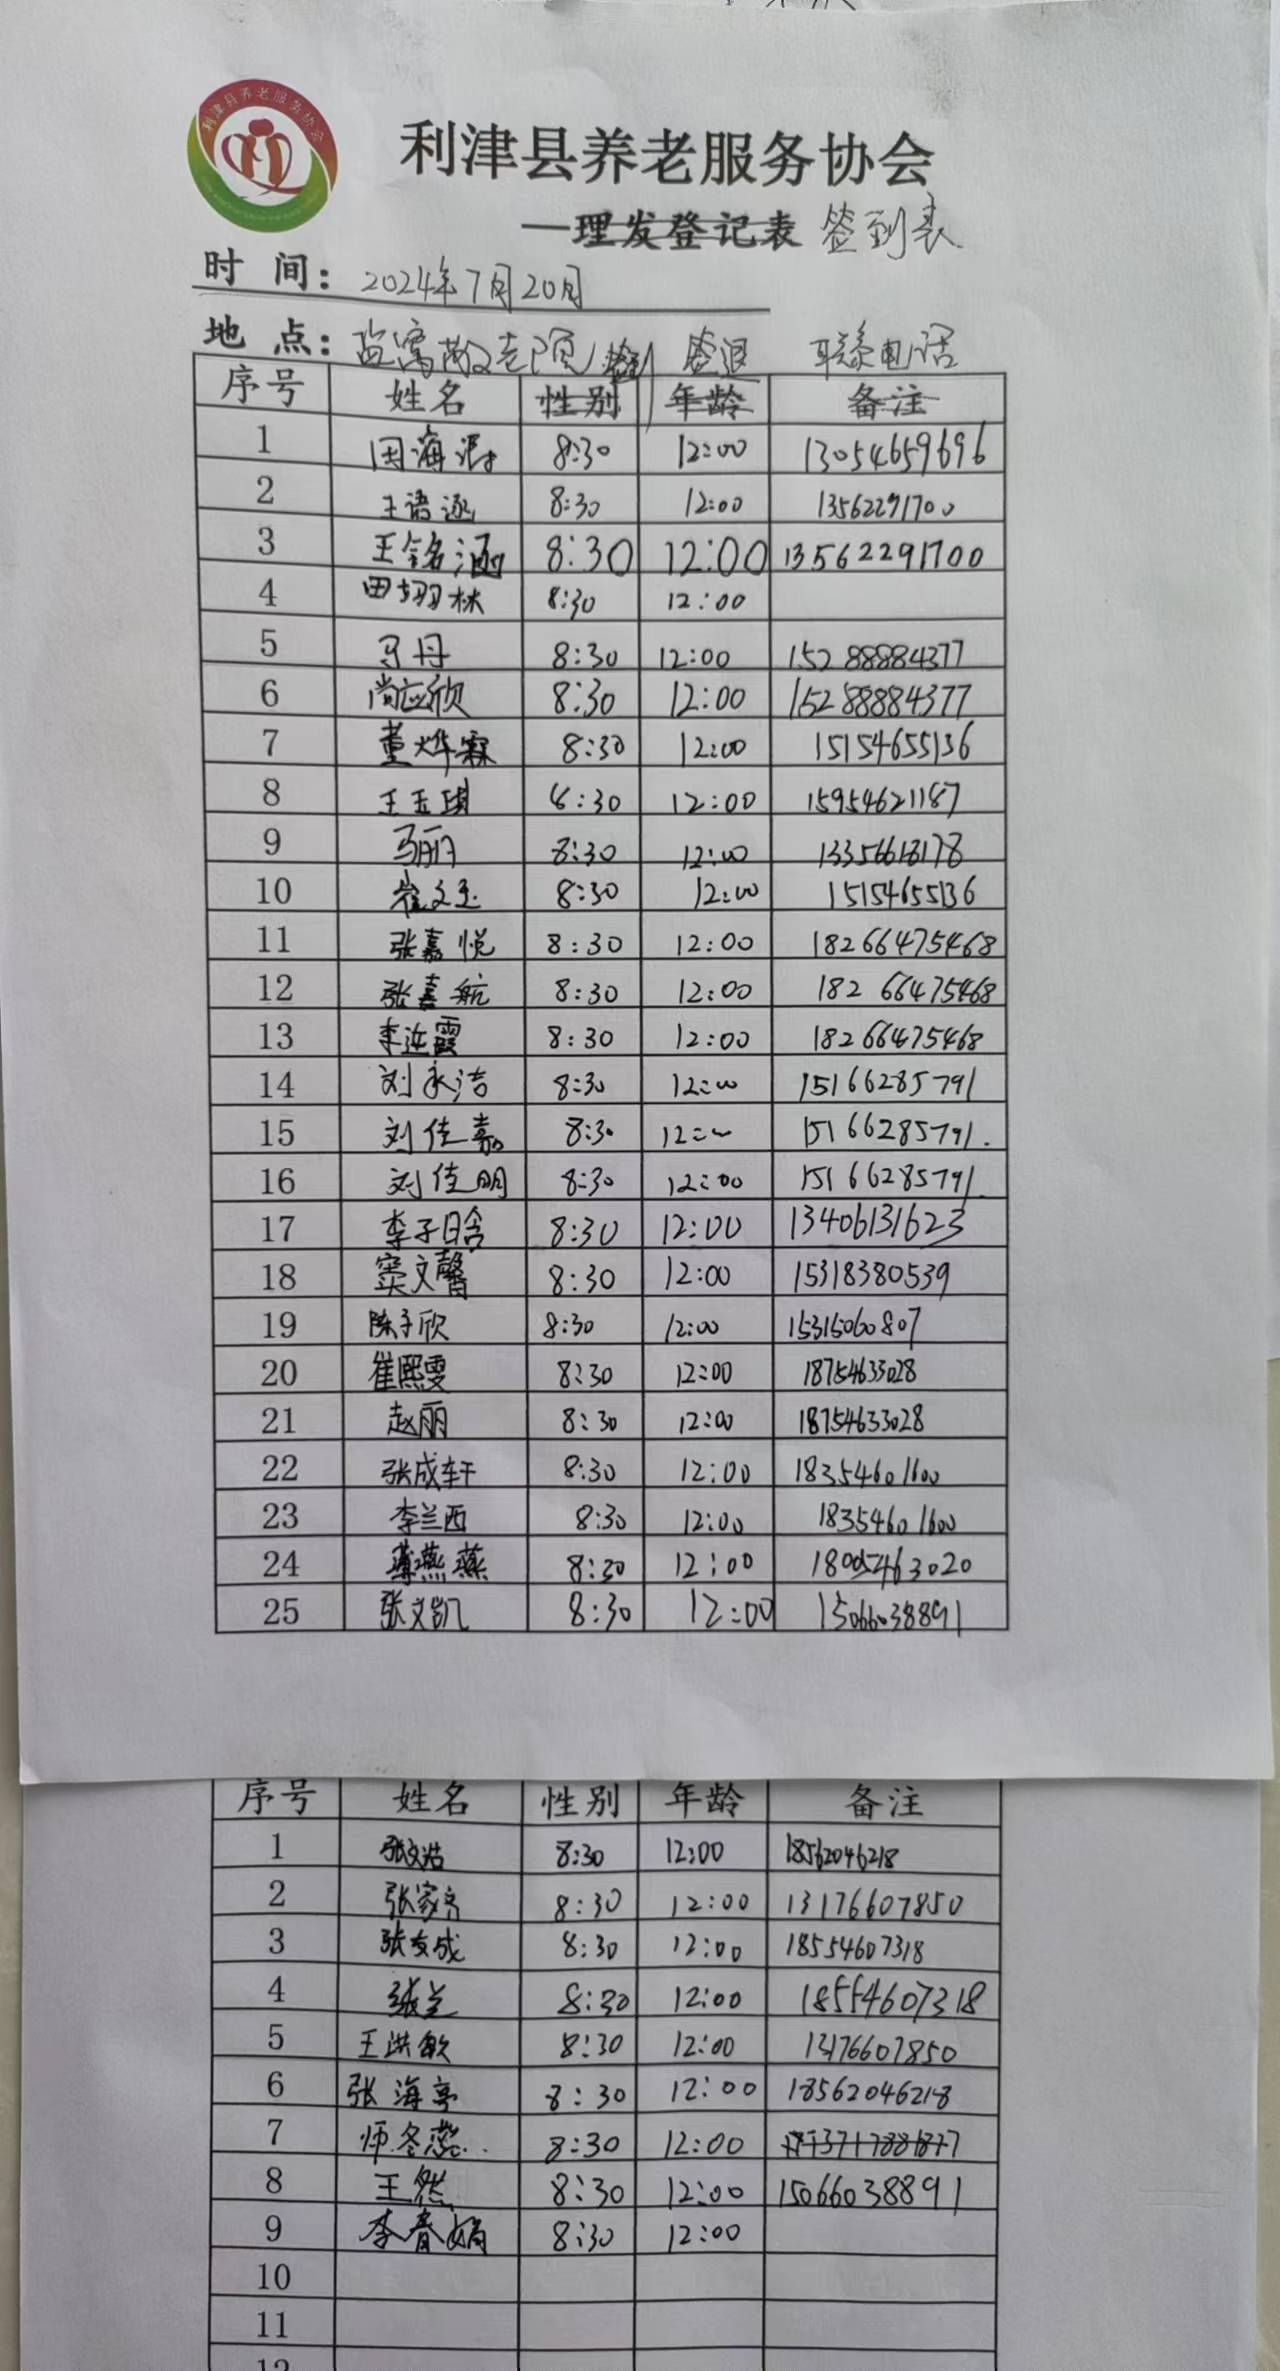 利津县养老服务协会
利津县养老服务协会
—理发登记表 签到表
时 间： 2024年7月20日
地 点： 盐窝敬老院 签到 签退 联系电话
序号 姓名 性别 年龄 备注
1 田海 8:30 12:00 13054659696
2 王语涵 8:30 12:00 13562291700
3 王铭涵 8:30 12:00 13562291700
4 田翊林 8:30 12:00
5 马丹 8:30 12:00 15288884377
6 尚应欣 8:30 12:00 15288884377
7 董烨霖 8:30 12:00 15154655136
8 王玉琪 8:30 12:00 15954621187
9 马丽丹 8:30 12:00 13356618178
10 崔文玉 8:30 12:00 15154655136
11 张嘉悦 8:30 12:00 18266475468
12 张嘉航 8:30 12:00 18266475468
13 李迎霞 8:30 12:00 18266475468
14 刘永洁 8:30 12:00 15166285791
15 刘佳嘉 8:30 12:00 15166285791.
16 刘佳明 8:30 12:00 15166285791.
17 李子晗 8:30 12:00 13406131623
18 窦文馨 8:30 12:00 15318380539
19 陈子欣 8:30 12:00 15315060807
20 崔熙雯 8:30 12:00 18754633028
21 赵丽 8:30 12:00 18754633028
22 张成轩 8:30 12:00 18354601600
23 李兰西 8:30 12:00 18354601600
24 薄燕燕 8:30 12:00 18005463020
25 张文凯 8:30 12:00 15066038891
序号 姓名 性别 年龄 备注
1 张文浩 8:30 12:00 18562046218
2 张家齐 8:30 12:00 13176607850
3 张友成 8:30 12:00 18554607318
4 张兰 8:30 12:00 18554607318
5 王洪敏 8:30 12:00 13176607850
6 张海亭 8:30 12:00 18562046218
7 师冬蕊 8:30 12:00
8 王然 8:30 12:00 15066038891
9 李春娟 8:30 12:00
10
11
12